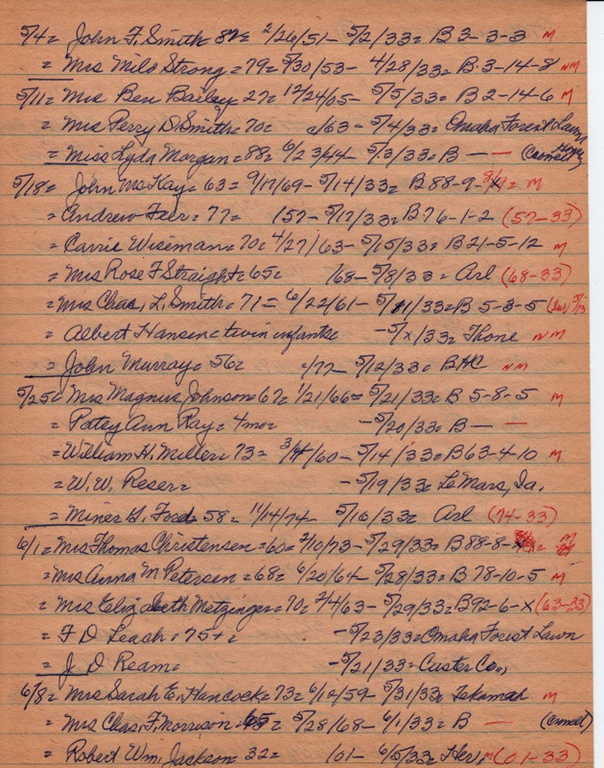 5/4= John F. Smith= 82= 2/26/51- 5/2/33= B 3-3-3 M
= Mrs Milo Strong= 79= 5/30/53- 4/28/33= B-3-14-8 NM
5/11= Mrs Ben Bailey= 27= 12/24/05- 5/5/33= B 2-14-6 M
= Mrs Perry D Smith= 70= /63- 5/4/33= Omaha Forest Lawn
= Miss Lyda Morgan= 88= 6/23/44- 5/3/33= B — — (Crowell Home)
5/18= John McKay= 63= 9/17/69- 5/14/33= B 88-9- = M
= Andrew Feer= 77= /57- 5/17/33= B 76-1-2 (57-33)
= Carrie Wiseman= 70= 4/27/63- 5/15/33= B 21-5-12 M
= Mrs Rose F Straight= 65= /68- 5/8/33= Arl (68-33)
= Mrs Chas. L. Smith= 71= 6/22/61- 5/11/33= B 5-3-5
= Albert Hansen= twin infants= -5/x/33= Thone NM
= John Murray= 56= /77- 5/12/33= BHC NM
5/25= Mrs Magnus Johnson= 67= 1/21/66= 5/21/33= B 5-8-5 M
= Patsy Ann Ray= 4mo= -5/20/33= B — —
= William H. Miller= 73= /60- 5/14/33= B 63-4-10 M
= W. W. Reser= -5/19/33= Le Mars, Ia.
= Miner G. Ford= 58= 11/14/74- 5/16/33= Arl (74-33)
6/1= Mrs Thomas Christensen= 60= 2/10/73- 5/29/33= B 88-8- M
= Mrs Anna M Petersen= 68= 6/20/64- 5/28/33= B 78-10-5 M
= Mrs Elizabeth Metzinger= 70= 2/4/63- 5/29/33= B 92-6-x (63-33)
= F D Leash= 75+= -5/23/33= Omaha Forest Lawn
= J. D Ream= -5/21/33= Custer Co.,
6/8= Mrs Sarah E. Hancock= 73= 6/12/59- 5/31/33= Tekamah M
= Mrs Chas. F. Morrison- 65= 5/28/68- 6/1/33= B — (Crowell)
= Robert Wm. Jackson= 32= /01- 6/5/33= Her. M (01-33)